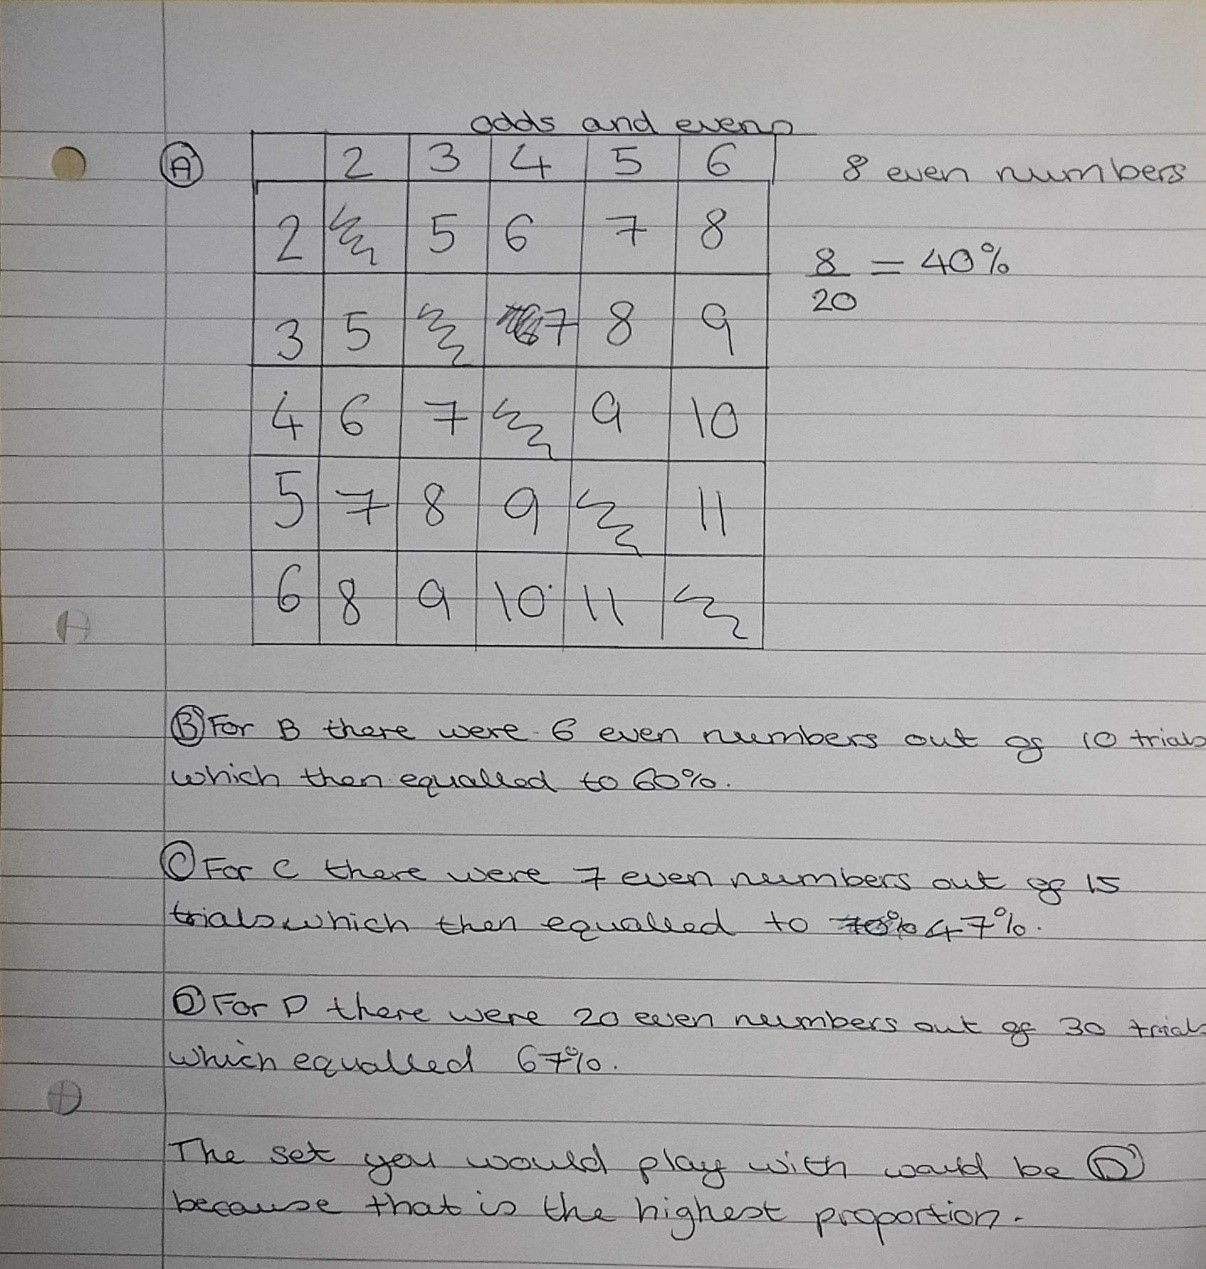 odds and evens
Ⓐ 2 3 4 5 6 8 even numbers
2 5 6 7 8
8/20 = 40%
3 5 7 8 9
4 6 7 9 10
5 7 8 9 11
6 8 9 10 11
Ⓑ For B there were 6 even numbers out of 10 trials
which then equalled to 60%.
Ⓒ For C there were 7 even numbers out of 15
trials which then equalled to 47%.
Ⓓ For D there were 20 even numbers out of 30 trials
which equalled 67%.
The set you would play with would be Ⓓ
because that is the highest proportion.